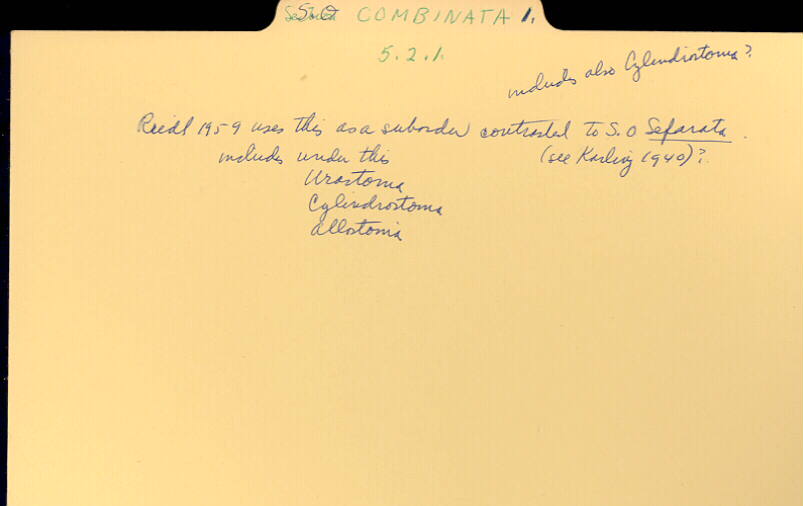 S.O. COMBINATA 1.
5.2.1.
includes also Cylindrostoma?
Riedl 1959 uses this as a suborder contrasted to S.O Separata.
includes under this (see Karling 1940)?
Urastoma
Cylindrostoma
Allostoma